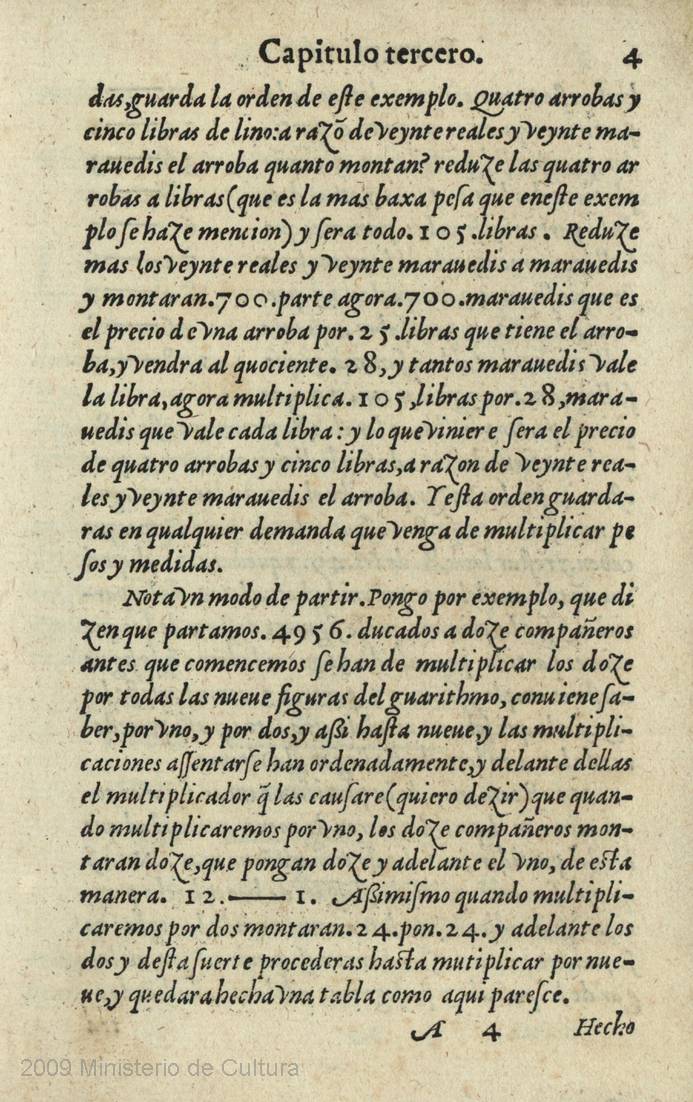 Capitulo tercero. 4
das,guarda la orden de este exemplo. Quatro arrobas y
cinco libras de lino:a razõ de veynte reales y veynte ma-
rauedis el arroba quanto montan? reduze las quatro ar
robas a libras(que es la mas baxa pesa que eneste exem
plo se haze mencion)y sera todo.105.libras . Reduze
mas los veynte reales y veynte marauedis a marauedis
y montaran.700.parte agora.700.marauedis que es
el precio de vna arroba por.25.libras que tiene el arro-
ba,y vendra al quociente. 28,y tantos marauedis vale
la libra,agora multiplica.105,libras por.28,mara-
uedis que vale cada libra:y lo que viniere sera el precio
de quatro arrobas y cinco libras,a razon de veynte rea-
les y veynte marauedis el arroba. Y esta orden guarda-
ras en qualquier demanda que venga de multiplicar pe
sos y medidas.
Nota vn modo de partir.Pongo por exemplo, que di
zen que partamos.4956. ducados a doze compañeros
antes que comencemos se han de multiplicar los doze
por todas las nueue figuras del guarithmo, conuiene sa-
ber,por vno,y por dos,y assi hasta nueue,y las multipli-
caciones assentarse han ordenadamente,y delante dellas
el multiplicador q̃ las causare(quiero dezir)que quan-
do multiplicaremos por vno, los doze compañeros mon-
taran doze,que pongan doze y adelante el vno, de esta
manera. 12.—— 1. Assimismo quando multipli-
caremos por dos montaran.24.pon.24.y adelante los
dos y desta suerte procederas hasta mutiplicar por nue-
ue,y quedara hecha vna tabla como aqui paresce.
A 4 Hecho
2009 Ministerio de Cultura